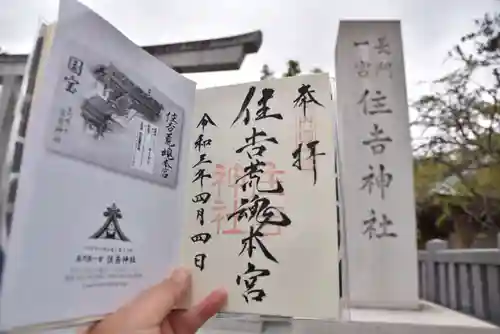 国宝
住吉荒魂本宮
長門一の宮 住吉神社
奉拝
住吉荒魂本宮
令和三年四月四日
神社
長門
一宮
住吉神社